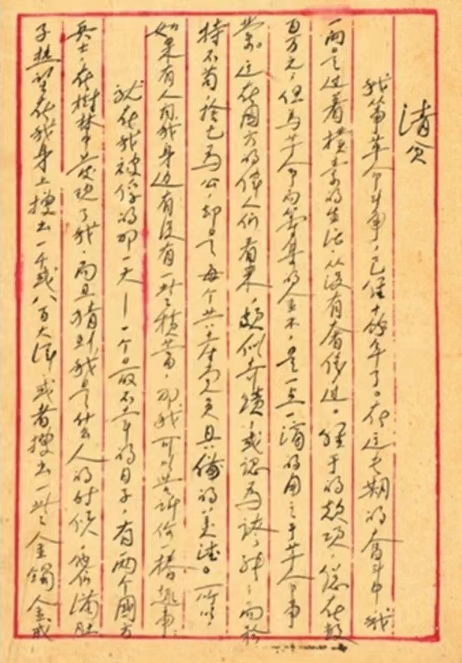 清贫
我從事革命鬥爭，已經十餘年了。在这長期的奮鬥中，我
一向是过着樸素的生活，从没有奢侈过。經手的款項，总在数
百万元；但為革命而籌集的金錢，是一点一滴的用之于革命事
業。这在國方的偉人们看来，頗似奇蹟，或认為誇張；而矜
持不苟，捨己為公，却是每个共產党员具備的美德。所以，
如果有人问我身边有没有一些積蓄，那我可以告诉你一樁趣事：
就在我被俘的那一天——一个最不幸的日子，有两个國方
兵士，在樹林中发现了我，而且猜到我是什么人的时候，他们满肚
子热望在我身上搜出一千或八百大洋，或者搜出一些金鐲金戒